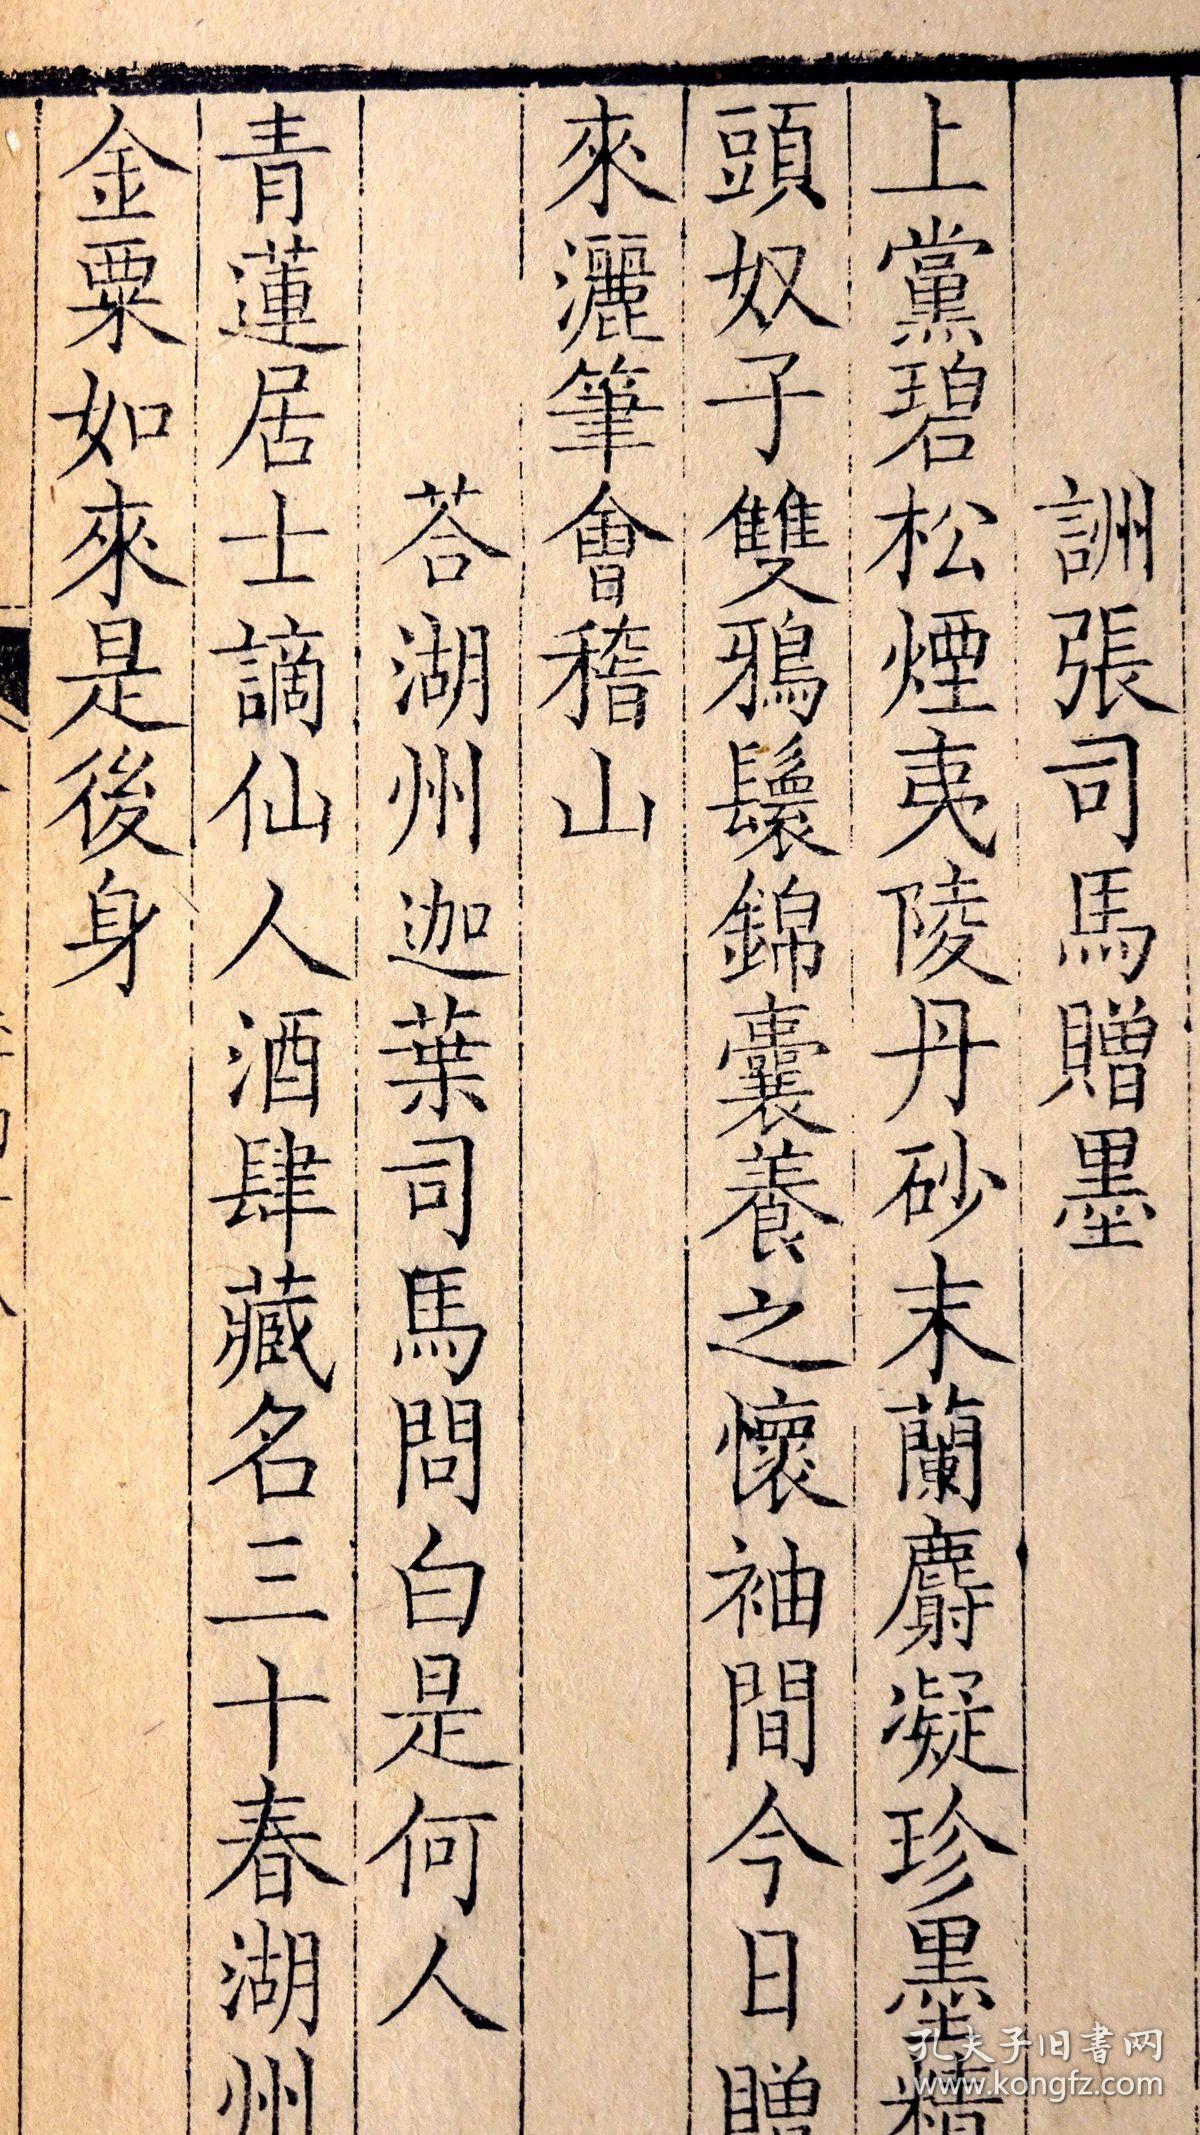 詶張司馬贈墨
上黨碧松煙夷陵丹砂末蘭麝凝珍墨精
頭奴子雙鵶鬟錦囊養之懷袖間今日贈
來灑筆會稽山
荅湖州迦葉司馬問白是何人
青蓮居士謫仙人酒肆藏名三十春湖州
金粟如來是後身
孔夫子旧書网
www.kongfz.com